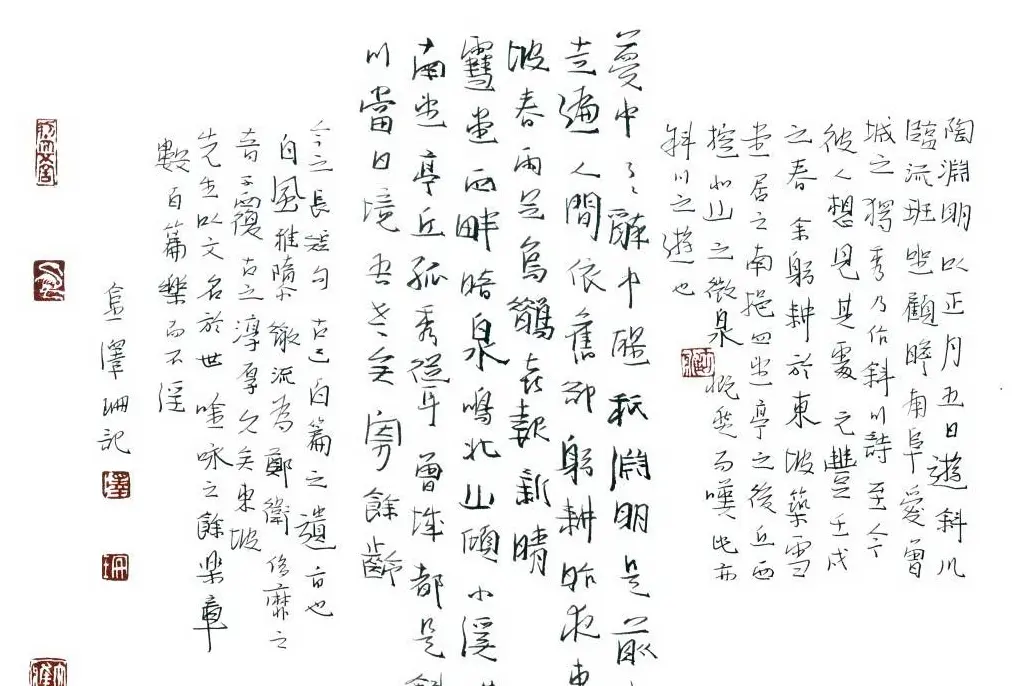 陶淵明以正月五日遊斜川
臨流班坐顧瞬南阜愛曾
城之獨秀乃作斜川詩至今
使人想見其處元豐壬戌
之春余躬耕於東坡築雪
堂居之南挹四望亭之後丘西
控北山之微泉慨然而嘆此亦
斜川之遊也
夢中了了醉中醒秖淵明是前
走遍人間依舊卻躬耕昨夜東
坡春雨足烏鵲喜報新晴
雪堂西畔暗泉鳴北山傾小溪
南望亭丘孤秀聳曾城都是斜
川當日境吾老矣寄餘齡
今之長短句古三百篇之遺旨也
自風雅隳散流為鄭衛侈靡之
音不復古之淳厚久矣東坡
先生以文名於世吟咏之餘樂章
數百篇樂而不淫
澤珊記
澤
珊